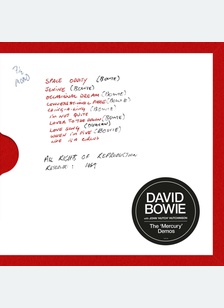 SPACE ODDITY (BOWIE)
JANINE (BOWIE)
OCCASIONAL DREAM (BOWIE)
CONVERSATIONAL PIECE (BOWIE)
CHING-A-LING (BOWIE)
I'M NOT QUITE
LOVER TO THE DAWN (BOWIE)
LOVE SONG (DUNCAN)
WHEN I'M FIVE (BOWIE)
LIFE IS A CIRCUS
ALL RIGHT OF REPRODUCTION
RESERVED! 1969
DAVID
BOWIE
WITH JOHN 'HUTCH' HUTCHINSON
The 'Mercury'
Demos